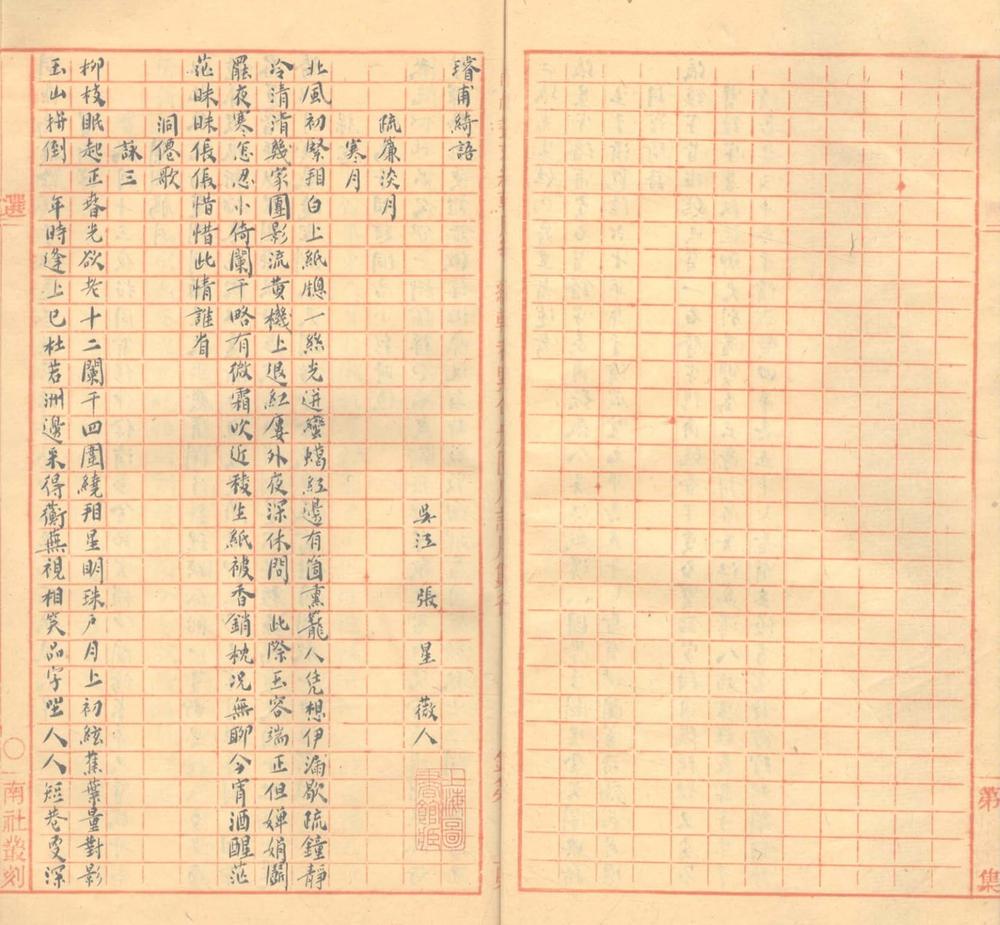 第 集
璿甫綺語
吳江 張 星 薇人
疏簾淡月
寒月
北風初緊翔白上紙牕一絲光迸蠻蠟紅邊有箇熏籠人凭想伊漏歇疏鐘靜
冷清清幾家團影流黃機上退紅屢外夜深休問 此際玉容端正但嬋娟鬭
罷夜寒怎忍小倚闌干略有微霜吹近稜生紙被香銷枕况無聊今宵酒醒茫
茫昧昧倀倀惜惜此情誰省
洞僊歌
詠三
柳枝眠起正春光欲老十二闌干四圍繞翔星明珠戶月上初絃蕉葉量對影
玉山拚倒 年時逢上巳杜若洲邊采得蘅蕪視相笑品字坐人人短巷更深
選
南社叢刻
上海圖書館藏